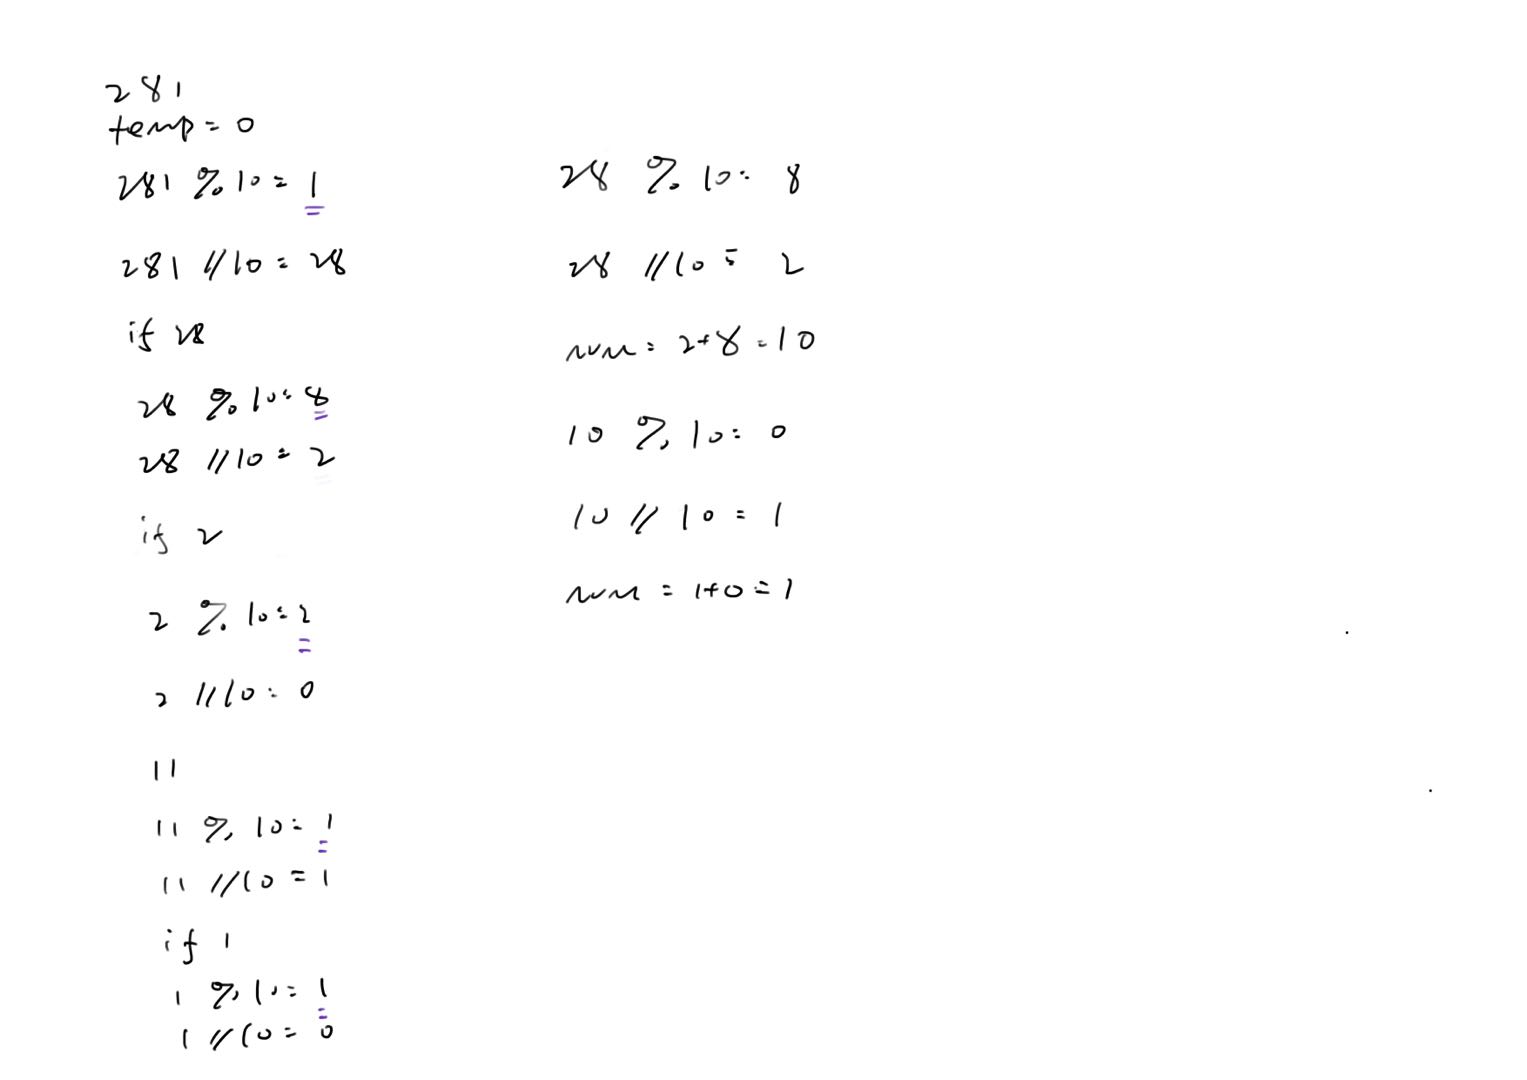 281
temp = 0
281 % 10 = 1
281 // 10 = 28
if 28
28 % 10 = 8
28 // 10 = 2
if 2
2 % 10 = 2
2 // 10 = 0
11
11 % 10 = 1
11 // 10 = 1
if 1
1 % 10 = 1
1 // 10 = 0
28 % 10 = 8
28 // 10 = 2
num = 2+8 = 10
10 % 10 = 0
10 // 10 = 1
num = 1+0 = 1